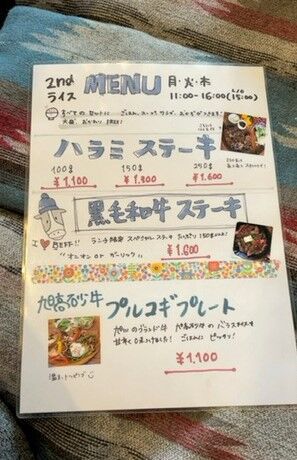 2nd MENU 月・火・木
ライス 11:00-16:00 (15:00)
L/O
すべての セットに ごはん、スープ、サラダ、おかずがつきます!
大盛、おかわり FREE!
ハラミ ステーキ
100g 150g 250g
¥1,100 ¥1,300 ¥1,600
黒毛和牛 ステーキ
I BEEF!!
ランチ限定 スペシャルステーキ
¥1,600
"オニオン or ガーリック"
プルコギプレート
旭川のブランド牛
ごはんに ピッタリ!
¥1,100